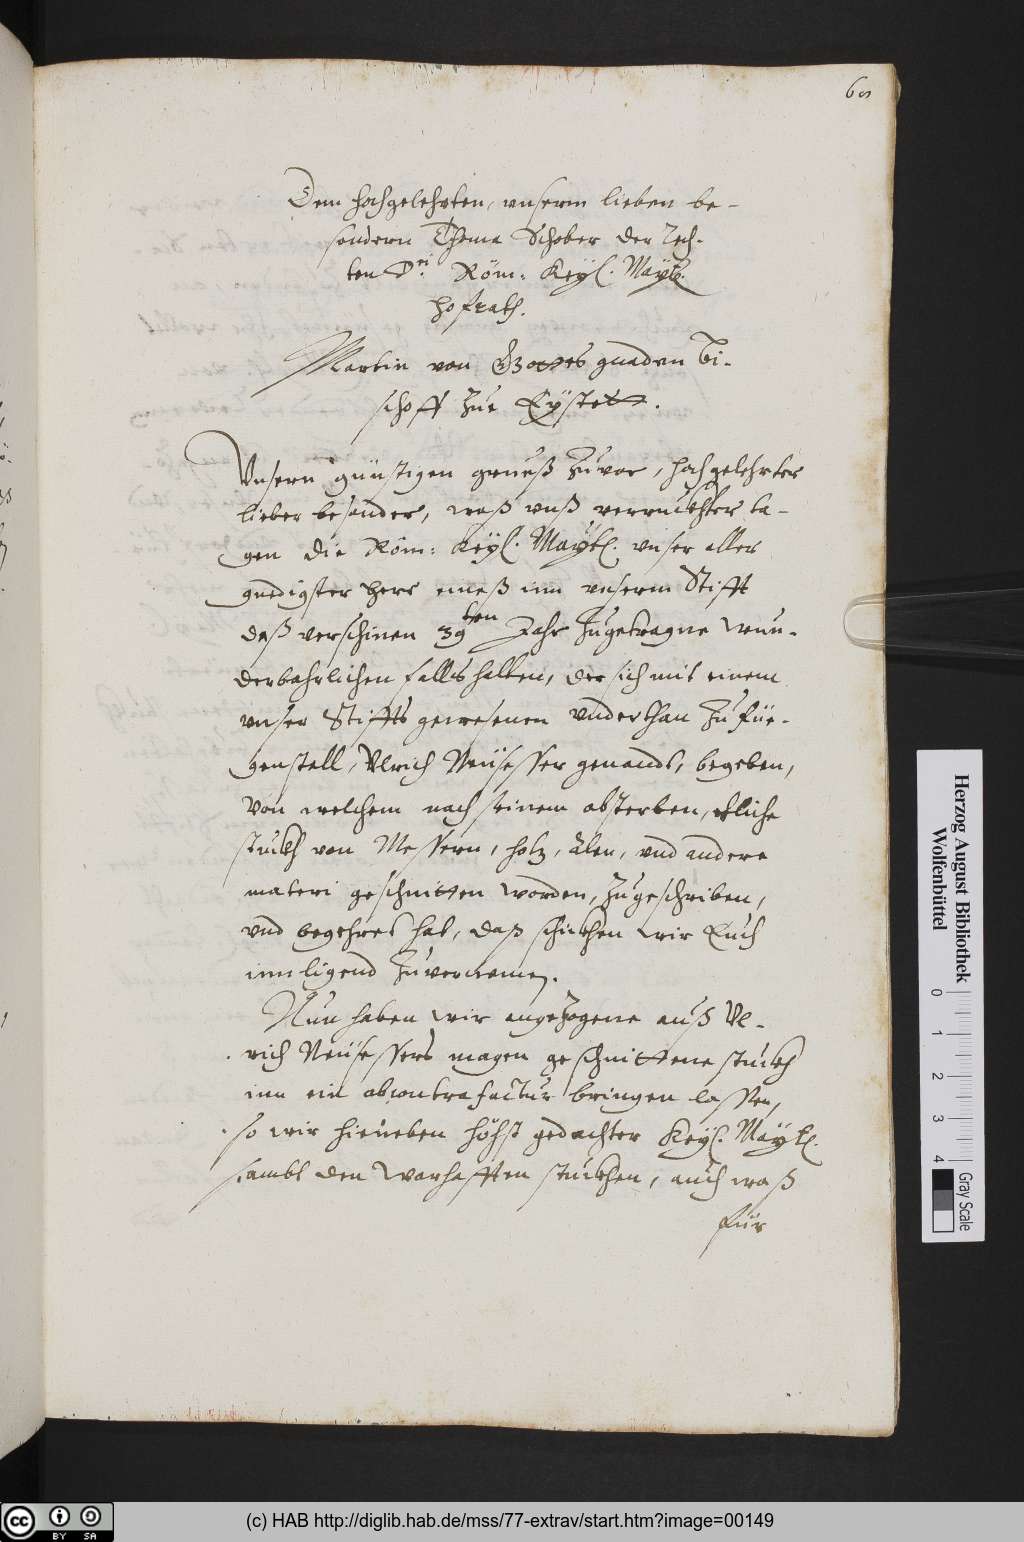 Dem hochgelehrten, unserm lieben be-
sondern Thoma Schober der Rech-
ten D. Röm: Keyß. Maytt.
Hofrath.
Martin von Gottes gnaden Bi-
schoff zue Eystett.
Unsern günstigen grueß zuvor, hochgelehrter
lieber besonder, waß unß verruckhter ta-
gen die Röm: Keyß. Maytt. unser aller
gnedigster Herr eineß inn unserm Stifft
daß verschinen 39ten Jahr zugetragne wun-
derbahrlichen falls halben, der sich mit einem
unser Stiffts gewesenen underthan zu Füe-
genstall, Ulrich Neüsesser genandt, begeben,
von welchem nach seinem absterben, etliche
stuckh von Messern, holz, älen, und andere
materi geschnitten worden, zugeschriben,
und begehret hat, daß schickhen wir Euch
innligend zuvernemen.
Nun haben wir angezogene auß Ul-
rich Neüsessers magen geschnittene stuckh
inn ein abcontrafactur bringen lassen,
so wir hieneben höchst gedachter Keyß. Maytt.
sambt den warhafften stuckhen, auch waß
für
Herzog August Bibliothek
Wolfenbüttel
0 1 2 3 4
Gray Scale
CC BY SA
(c) HAB http://diglib.hab.de/mss/77-extrav/start.htm?image=00149